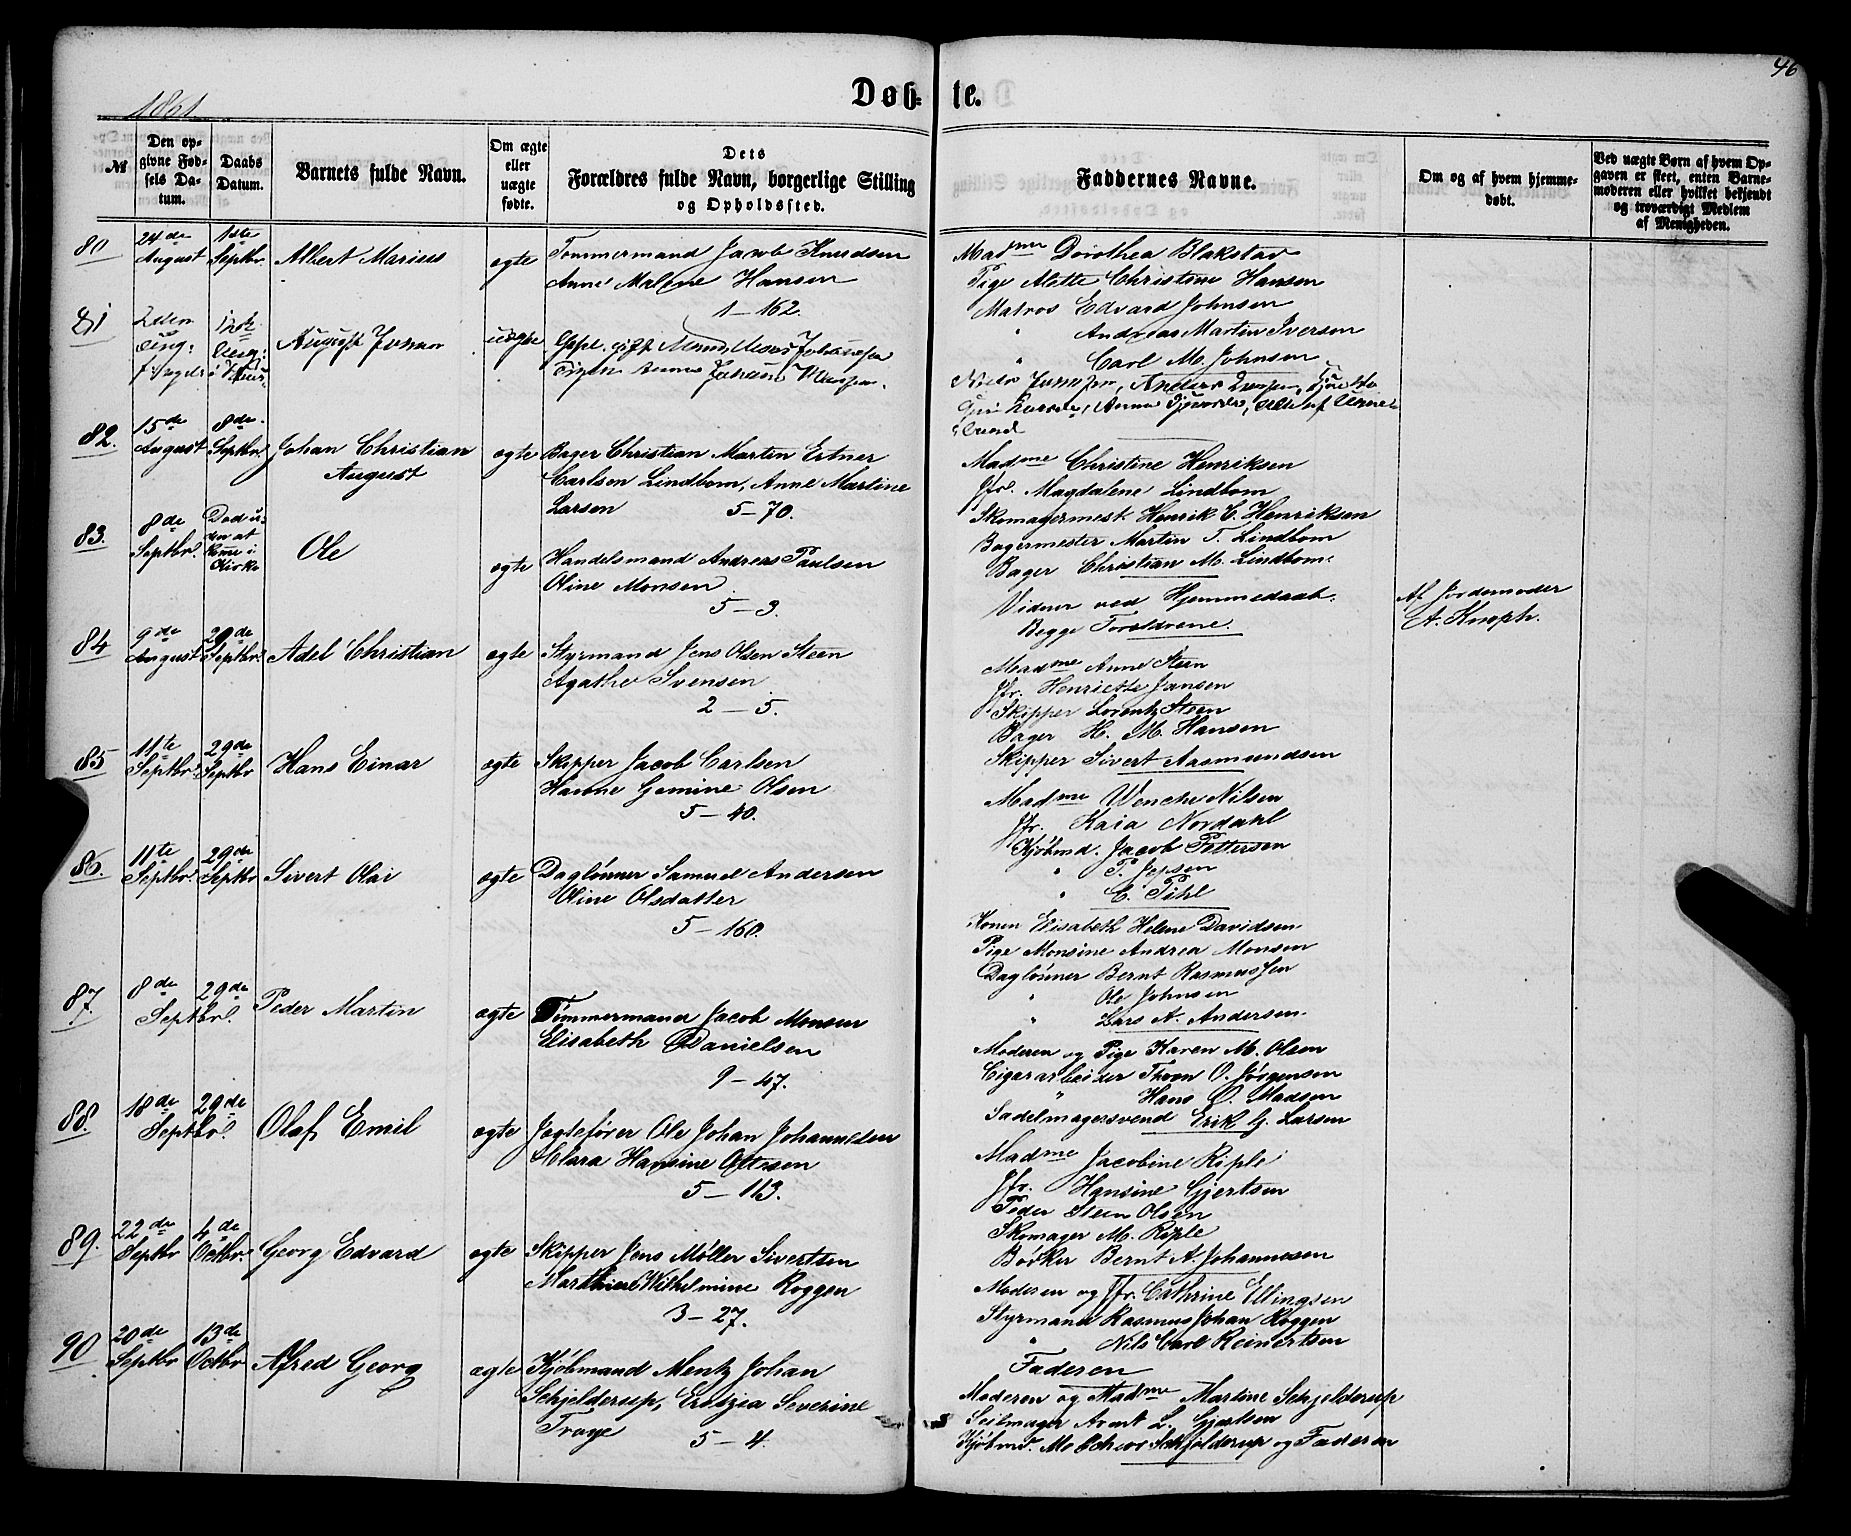 46
1861
Døb- te.
№
Den opgivne Fødsels Datum.
Daabs Datum.
Barnets fulde Navn.
Om ægte eller uægte fødte.
Dets Forældres fulde Navn, borgerlige Stilling og Opholdssted.
Faddernes Navne.
Om og af hvem hjemmedøbt.
Ved uægte Børn af hvem Opgaven er skeet, enten Barnemoderen eller hvilket bekjendt og troværdigt Medlem af Menigheden.
80
24de August
1ste Septbr.
Albert Marius
ægte
Tømmermand Jacob Knudsen
Anne Malene Hansen
1 - 162.
Madme Dorothea Blakstav
Pige Mette Christine Hansen
Matros Edvard Johnsen
" Andreas Martin Iversen
" Carl M. Johnsen
81
August
uægte
82.
15de August
8de Septbr.
Johan Christian
August
ægte
Bager Christian Martin Ertner
Carlsen Lindbom, Anne Martine
Larsen
5 - 70.
Madme Christine Henriksen
Jfr. Magdalene Lindbom
Skomagermest. Henrik C. Henriksen
Bagermester Martin T. Lindbom
Bager Christian M. Lindbom.
83.
8de Septbr.
Død uden at komme i Kirke
Ole
ægte
Handelsmand Andreas Paulsen
Oline Monsen
5 - 3.
Vidner ved Hjemmedaab.
Begge Forældrene.
Af Jordemoder
A. Knoph.
84
9de August
29de Septbr.
Adel Christian
ægte
Styrmand Jens Olsen Steen
Agathe Svensen
2 - 5.
Madme Anne Steen
Jfr. Henriette Jansen
Skipper Lorentz Steen
Bager H. M. Hansen
Skipper Sivert Aasmundsen
85
11te Septbr.
29de Septbr
Hans Einar
ægte
Skipper Jacob Carlsen
Hanne Gemine Olsen
5 - 40.
Madme Wenche Nilsen
Jfr. Kaia Nordahl
Kjøbmd. Jacob Pettersen
" P. Jepsen
" C. Pihl
86.
11te Septbr.
29de Septbr
Sivert Olai
ægte
Daglønner Samuel Andersen
Oline Olsdatter
5 - 160.
Konen Elisabeth Helene Davidsen
Pige Monsine Andrea Monsen
Daglønner Bernt Rasmussen
" Ole Johnsen
" Lars A. Andersen.
87.
8de 29de
Septbr.
Peder Martin
ægte
Tømmermand Jacob Monsen
Elisabeth Danielsen
9 - 47.
Moderen og Pige Karen M. Olsen
Cigararbeider Thron O. Jørgensen
" Hans O. Madsen
Sadelmagersvend Erik G. Larsen
88.
18de 29de
Septbr.
Olaf Emil
ægte
Jægtefører Ole Johan Johannesen
Klara Hansine Ottesen
5 - 113.
Madme Jacobine Riple
Jfr. Hansine Gjertsen
Peder Steen Olsen
Skomager M. Riple
Bødker Bernt A. Johannesen
89.
22de Septbr
4de Octbr.
Georg Edvard
ægte
Skipper Jens Møller Sivertsen
Marthine Wilhelmine Roggen
3 - 27.
Moderen og Jfr. Cathrine Ellingsen
Styrmand Rasmus Johan Roggen
" Nils Carl Reinertsen
Faderen
90
20de Septbr
13de Octbr
Alfred Georg
ægte
Kjøbmand Mentz Johan
Schjelderup, Severine
Troye
5 - 4.
Moderen og Madme Martine Schjelderup
Seilmager L. Gjertsen
Kjøbmd. Melchior Schjelderup og Faderen